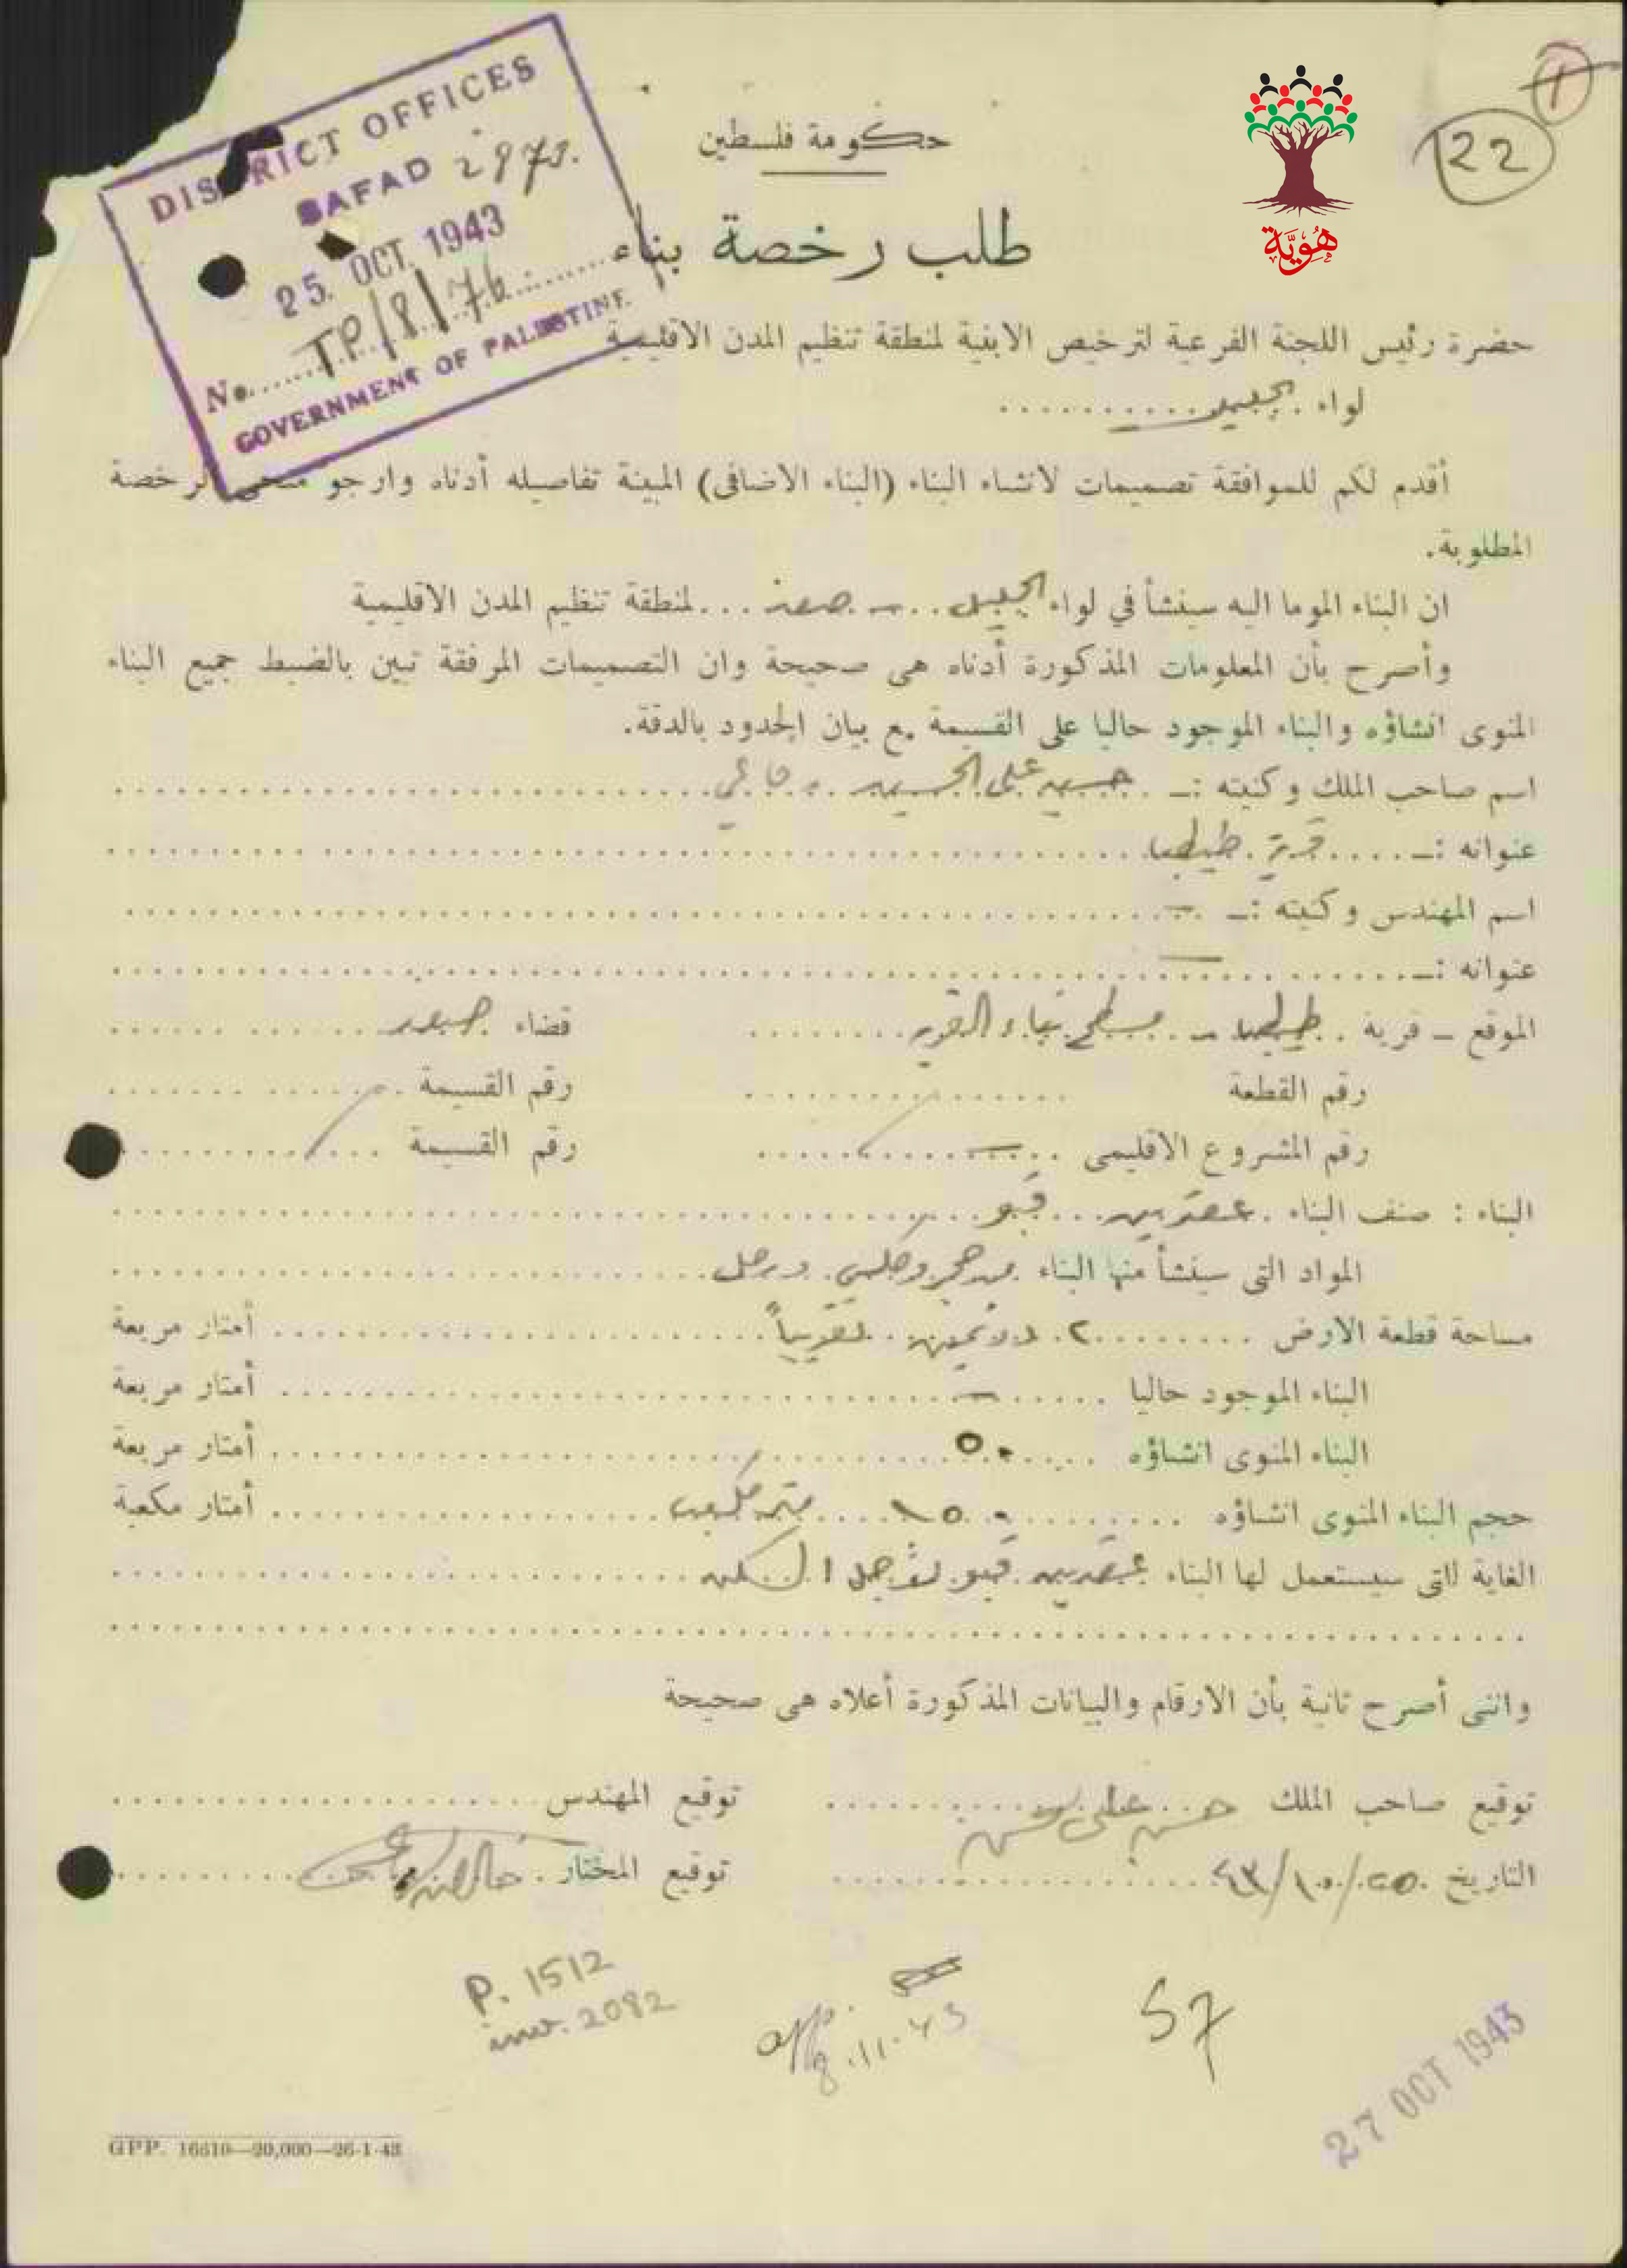 DISTRICT OFFICES
SAFAD 2973.
25. OCT. 1943
No. T.P./8/76
GOVERNMENT OF PALESTINE.
1
22
هُوِيَّة
حكومة فلسطين
طلب رخصة بناء
حضرة رئيس اللجنة الفرعية لترخيص الابنية لمنطقة تنظيم المدن الاقليمية
لواء
أقدم لكم للموافقة تصميمات لانشاء البناء (البناء الاضافى) المبينة تفاصيله أدناه وارجو منحى الرخصة
المطلوبة.
ان البناء الموما اليه سينشأ في لواء الجليل - صفد لمنطقة تنظيم المدن الاقليمية
وأصرح بأن المعلومات المذكورة أدناه هى صحيحة وان التصميمات المرفقة تبين بالضبط جميع البناء
المنوى انشاؤه والبناء الموجود حاليا على القسيمة مع بيان الحدود بالدقة.
اسم صاحب الملك وكنيته :ـ حسن علي الحسن
عنوانه :ـ قرية طيطبا
اسم المهندس وكنيته :ـ -
عنوانه :ـ -
الموقع ــ قرية طيطبا - مسطح بناء القرية قضاء صفد
رقم القطعة رقم القسيمة
رقم المشروع الاقليمى - رقم القسيمة
البناء : صنف البناء قبو
المواد التى سينشأ منها البناء من حجر وكلس ورمل
مساحة قطعة الارض ٢ دونمين تقريباً أمتار مربعة
البناء الموجود حاليا - أمتار مربعة
البناء المنوى انشاؤه ٥٠ أمتار مربعة
حجم البناء المنوى انشاؤه ١٥٠ متر مكعب أمتار مكعبة
الغاية التى سيستعمل لها البناء قبو لأجل السكن
وانى أصرح ثانية بأن الارقام والبيانات المذكورة أعلاه هى صحيحة
توقيع صاحب الملك حسن علي حسن توقيع المهندس
التاريخ ٢٥/١٠/٤٣ توقيع المختار
P. 1512
inv. 2082
app.
8.11.43
57
27 OCT 1943
GPP. 16610—20,000—26-1-43